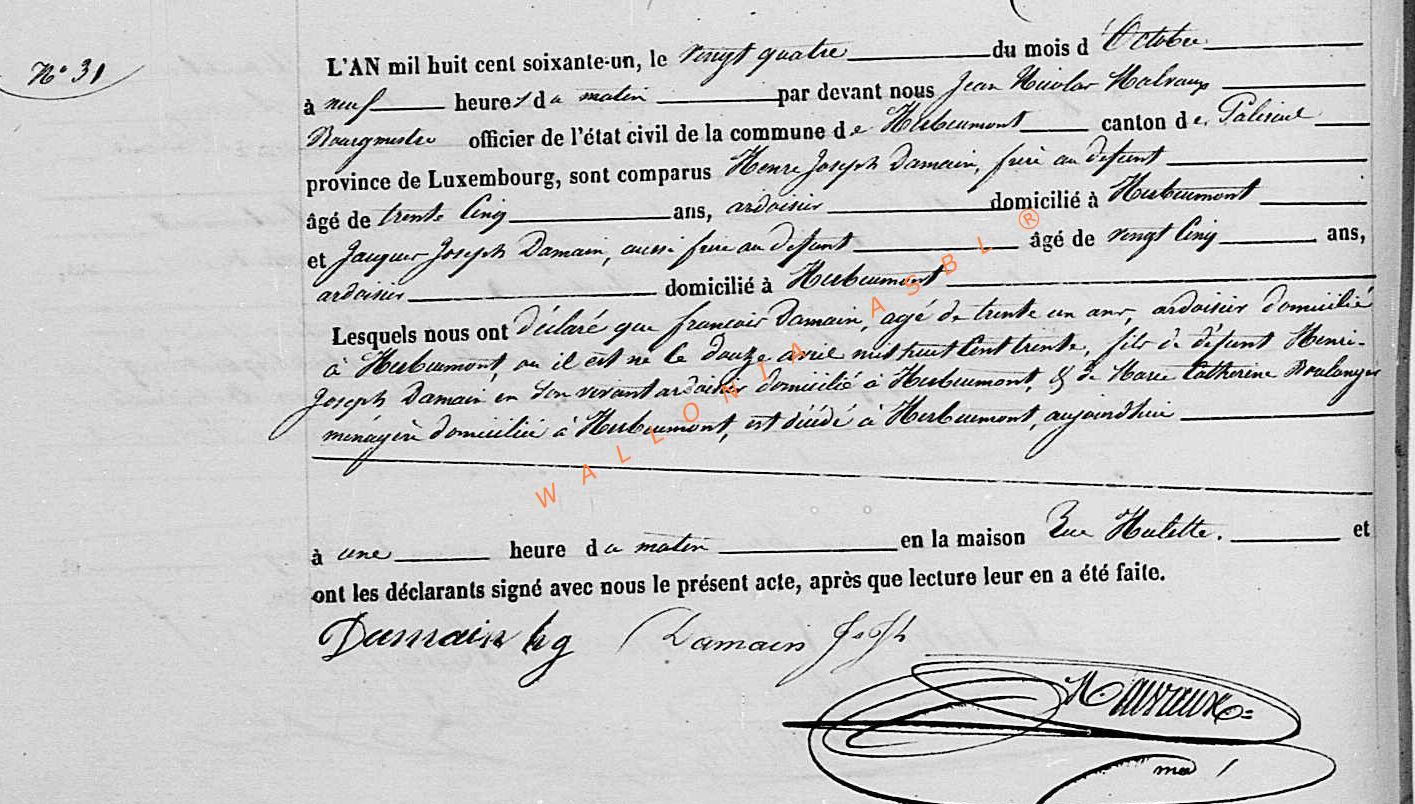 N° 31
L'AN mil huit cent soixante-un, le vingt quatre du mois d'Octobre
à neuf heures du matin par devant nous Jean Nicolas Malvaux
Bourgmestre officier de l'état civil de la commune de Herbeumont canton de Paliseul
province de Luxembourg, sont comparus Henri Joseph Damain, frère au défunt
âgé de trente cinq ans, ardoisier domicilié à Herbeumont
et Jacques Joseph Damain, aussi frère au défunt âgé de vingt cinq ans,
ardoisier domicilié à Herbeumont
Lesquels nous ont déclaré que francois Damain, agé de trente un ans, ardoisier domicilié
à Herbeumont, ou il est né le douze avril mil huit cent trente, fils de défunt Henri-
Joseph Damain en son vivant ardoisier domicilié à Herbeumont, & de Marie Catherine Boulanger
ménagère domiciliée à Herbeumont, est décédé à Herbeumont, aujourdhui
à une heure du matin en la maison Rue Hulette. et
ont les déclarants signé avec nous le présent acte, après que lecture leur en a été faite.
Damain Damain
WALLONIA ASBL ®